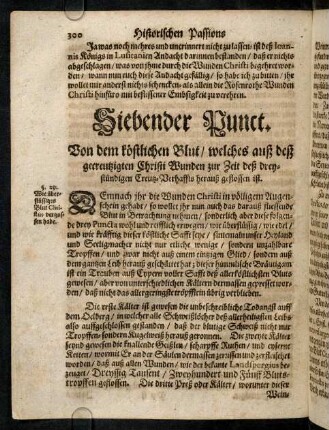 300 Historischen Passions
Ja was noch mehres und unerinnert nicht zu lassen / ist deß Ioannis
Königs in Lusitanien Andacht darinnen bestanden / daß er nichts
abgeschlagen / was von ihme durch die Wunden Christi begehret worden
/ wann nun euch diese Andacht gefällig / so habe ich zu bitten / ihr
wollet mir anderst nichts schencken / als allein die Rosenrothe Wunden
Christi hinfüro mit beflissener Embsigkeit zu verehren.
Siebender Punct.
Von dem köstlichen Blut / welches auß deß
gecreutzigten Christi Wunden zur Zeit deß drey-
stündigen Creutz-Verhaffts herauß geflossen ist.
§. 29.
Wie überflüssiges
Blut Christus
vergossen
habe.
DEmnach ihr die Wunden Christi in völligen Augenschein
gehabt / so wollet ihr nun auch das darauß fliessende
Blut in Betrachtung nehmen / sonderlich aber diese folgende
drey Puncta wohl und reifflich erwegen / wie überflüssig / wie viel /
und wie kräfftig dieser köstliche Safft seye / sintemahl unser Heyland
und Seeligmacher nicht nur etliche wenige / sondern unzahlbare
Tropffen / und zwar nicht auß einem eintzigen Glied / sondern auß
dem gantzen Leib herauß geschwitzet hat; dieser himmlische Bräutigam
ist ein Trauben auß Cypern voller Safft deß allerköstlichsten Bluts
gewesen / aber von unterschiedlichen Kältern dermassen gepresset worden
/ daß nicht das allergeringste Tröpfflein übrig verblieben.
Die erste Kälter ist gewesen die unbeschreibliche Todangst auff
dem Oelberg / in welcher alle Schweißlöcher deß allerheiligsten Leibs
also auffgeschlossen gestanden / daß der blutige Schweiß nicht nur
Tropffen- sondern Kugelweiß herauß geronnen. Die zweyte Kälter
seynd gewesen die stachlende Geißlen / scharpffe Ruthen / und eyserne
Ketten / wormit Er an der Säulen dermassen zerrissen und zerfleischet
worden / daß auß allen Wunden / wie der bekante
bezeuget / Dreyssig Tausent / Zweyhundert und Fünff Blutstropffen
geflossen. Die dritte Preß oder Kälter / worunter dieser
Wein-